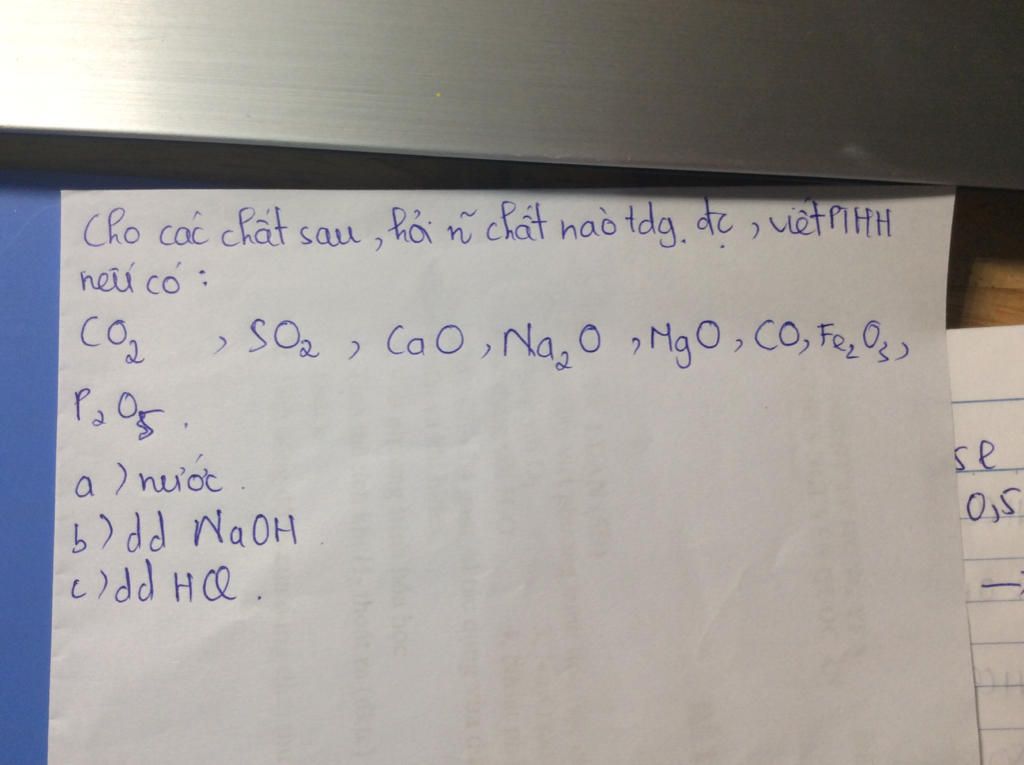 Cho các chất sau, hỏi ñ chất nào tdg. đc, viết PTHH
nếú có :
CO₂ , SO₂ , CaO , Na₂O , MgO , CO, Fe₂O₃,
P₂O₅ .
a ) nước .
b) dd NaOH
c) dd HCl .
se
0,5